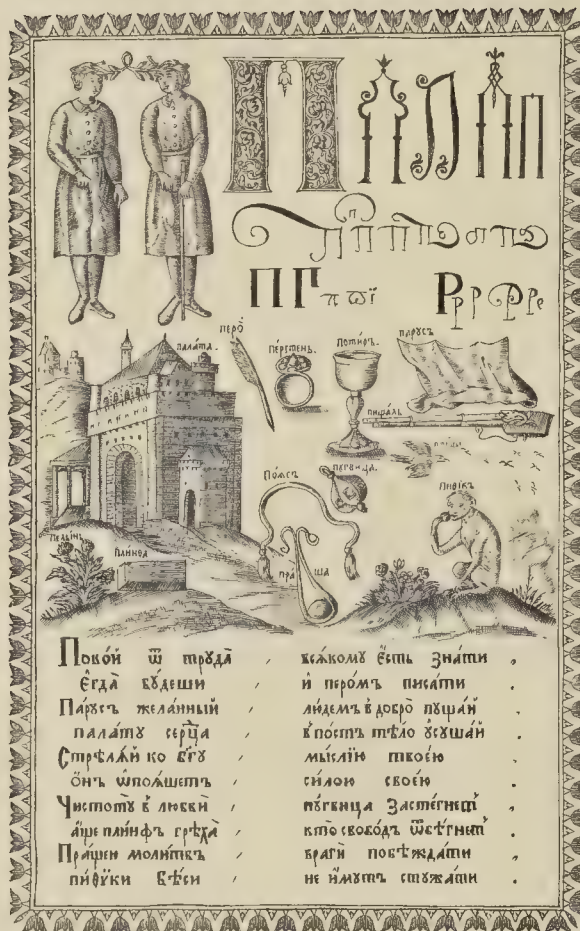 П П П П П
П Г п ѿ ї Р р Р р е
перо̀
пала́та.
пе́рстень.
Поти́ръ.
па́русъ
пища́ль
птицы
По́ясъ
пу́гвица.
Пи́ѳикъ
Пелы́нь
Плинѳа
пра ща
Поко́й ѿ труда̀ , вся́кому є́сть зна́ти ,
Є҆гда̀ бу́деши , и҆ перо́мъ писа́ти .
Па́русъ жела́нный , лю́демъ в̾ добро̀ пуща́й
пала́ту се́рца , в̾ по́стъ тѣ́ло ѹ҆суша́й
Стрѣлѧ́й ко бг҃у , мы́слїю твоє́ю
ѻ҆́нъ ѡ҆поѧ́шетъ , си́лою своє́ю
Чистоту̀ в̾ любви̂ , пу́гвица застегнетъ
а҆́ще пли́нѳъ грѣха̀ , кто̀ свобо́дъ ѿбѣ́гнетъ
Пра́щею моли́твъ , враги̂ побѣжда́ти ,
пиѳи́ки бѣ́си , не и҆́мутъ стужа́ти .